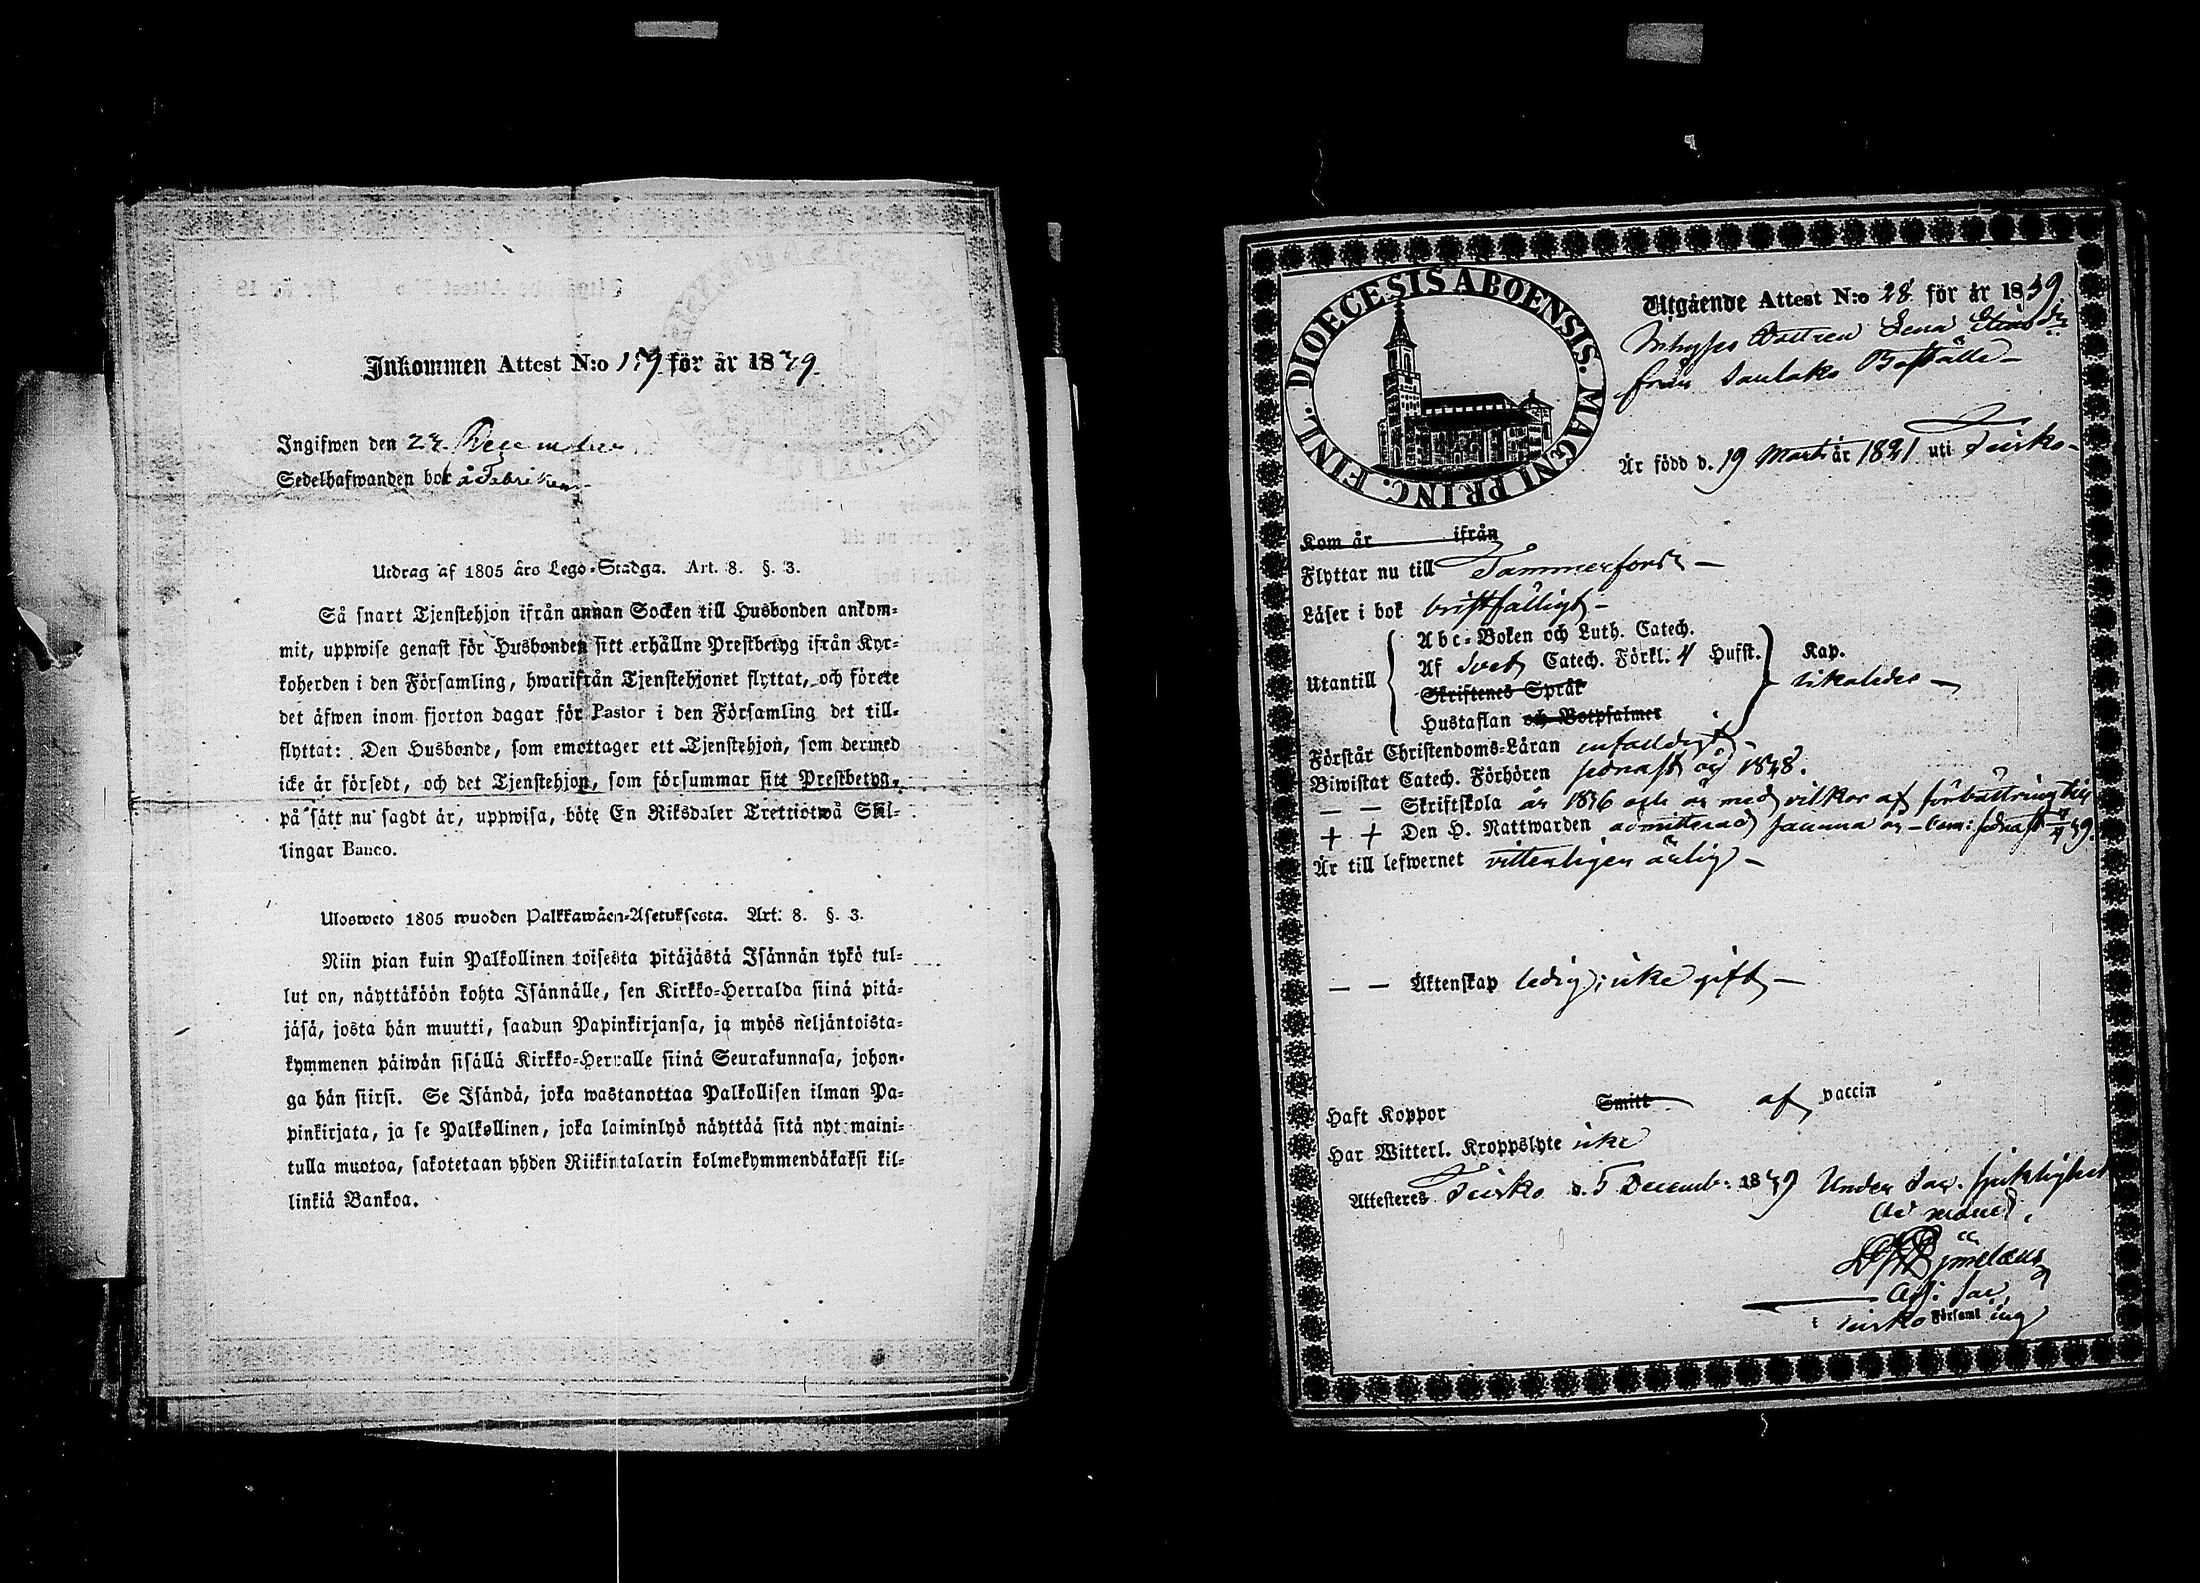 Inkommen Attest N:o 159 för år 1849.
Ingifwen den 27 December
Sedelhafwanden bor å Fabriken
Utdrag af 1805 års Lego-Stadga. Art. 8. §. 3.
Så snart Tjenstehjon ifrån annan Socken till Husbonden ankom-
mit, uppwise genast för Husbonden sitt erhållne Prestbetyg ifrån Kyr-
koherden i den Församling, hwarifrån Tjenstehjonet flyttat, och förete
det äfwen inom fjorton dagar för Pastor i den Församling det till-
flyttat: Den Husbonde, som emottager ett Tjenstehjon, som dermed
icke är försedt, och det Tjenstehjon, som försummar sitt Prestbetyg,
på sätt nu sagdt är, uppwisa, böte En Riksdaler Trettiotwå Skil-
lingar Banco.
Ulosweto 1805 wuoden Palkkawäen-Asetuksesta. Art. 8. §. 3.
Niin pian kuin Palkollinen toisesta pitäjästä Isännän tykö tul-
lut on, näyttäköön kohta Isännälle, sen Kirkko-Herralda siinä pitä-
jäsä, josta hän muutti, saadun Papinkirjansa, ja myös neljäntoista-
kymmenen päiwän sisällä Kirkko-Herralle siinä Seurakunnasa, johon-
ga hän siirsi. Se Isändä, joka wastanottaa Palkollisen ilman Pa-
pinkirjata, ja se Palkollinen, joka laiminlyö näyttää sitä nyt maini-
tulla muotoa, sakotetaan yhden Riikintalarin kolmekymmendäkaksi kil-
linkiä Bankoa.
DIOECESIS ABOENSIS. MAGNI PRINC. FINL.
Utgående Attest N:o 28 för år 1849.
Inhyses Dottren Lena Stinsdr
från Saulako Boställe
Är född d. 19 Marti år 1831 uti Teisko
Kom år ifrån
Flyttar nu till Tammerfors
Läser i bok bristfälligt
Utantill Abc-Boken och Luth. Catech.
Af Svet Catech. Förkl. 4 Hufst. Kap.
Skriftenes Språk
Hustaflan och Botpsalmer
Förstår Christendoms-Läran enfaldigt
Biwistat Catech. Förhören sednast år 1848.
— — Skriftskola år 1846 och är med vilkor af förbättring till
Den H. Nattwarden admitterad samma år
Är till lefwernet vitterligen ärlig
— — Äktenskap ledig; icke gift
Haft Koppor Smitt af vaccin
Har Witterl. Kroppslyte icke
Attesteres Teisko d. 5 Decemb: 1849 Under
Adj. Sac
i Teisko Församling